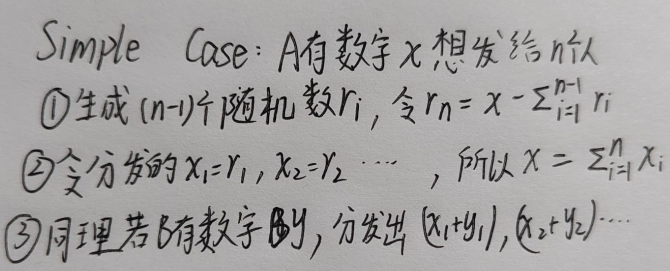 Simple Case: A有数字x想发给n个人
①生成(n-1)个随机数rᵢ, 令rₙ = x - Σᵢ₌₁ⁿ⁻¹ rᵢ
②令分发的x₁=r₁, x₂=r₂ ····, 所以 x = Σᵢ₌₁ⁿ xᵢ
③同理若B有数字y, 分发出 (x₁+y₁), (x₂+y₂)····